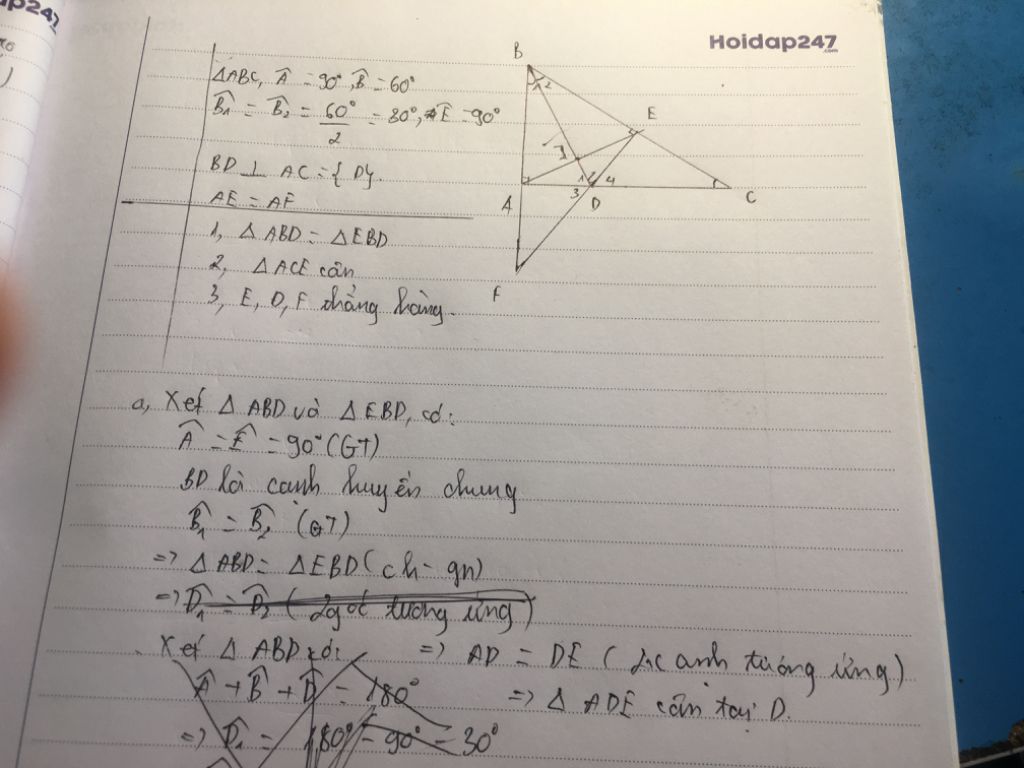 ap247
Hoidap247
.com
ΔABC, Â = 90°, B̂ = 60°
B̂₁ = B̂₂ = 60°/2 = 30°, Ê = 90°
BD ⊥ AC = {D}.
AE = AF
1, Δ ABD = Δ EBD
2, Δ ACE cân
3, E, D, F thẳng hàng.
B
1 2
E
I
A
1 2 4
3
D
C
F
a, Xét Δ ABD và Δ EBD, có:
Â = Ê = 90° (GT)
BD là cạnh huyền chung
B̂₁ = B̂₂ (GT)
=> Δ ABD = Δ EBD (ch - gn)
=> D̂₁ = D̂₂ (2 góc tương ứng)
Xét Δ ABD có: => AD = DE (2 cạnh tương ứng)
Â + B̂ + D̂ = 180° => Δ ADE cân tại D.
=> D̂₁ = 180° - 90° - 30°